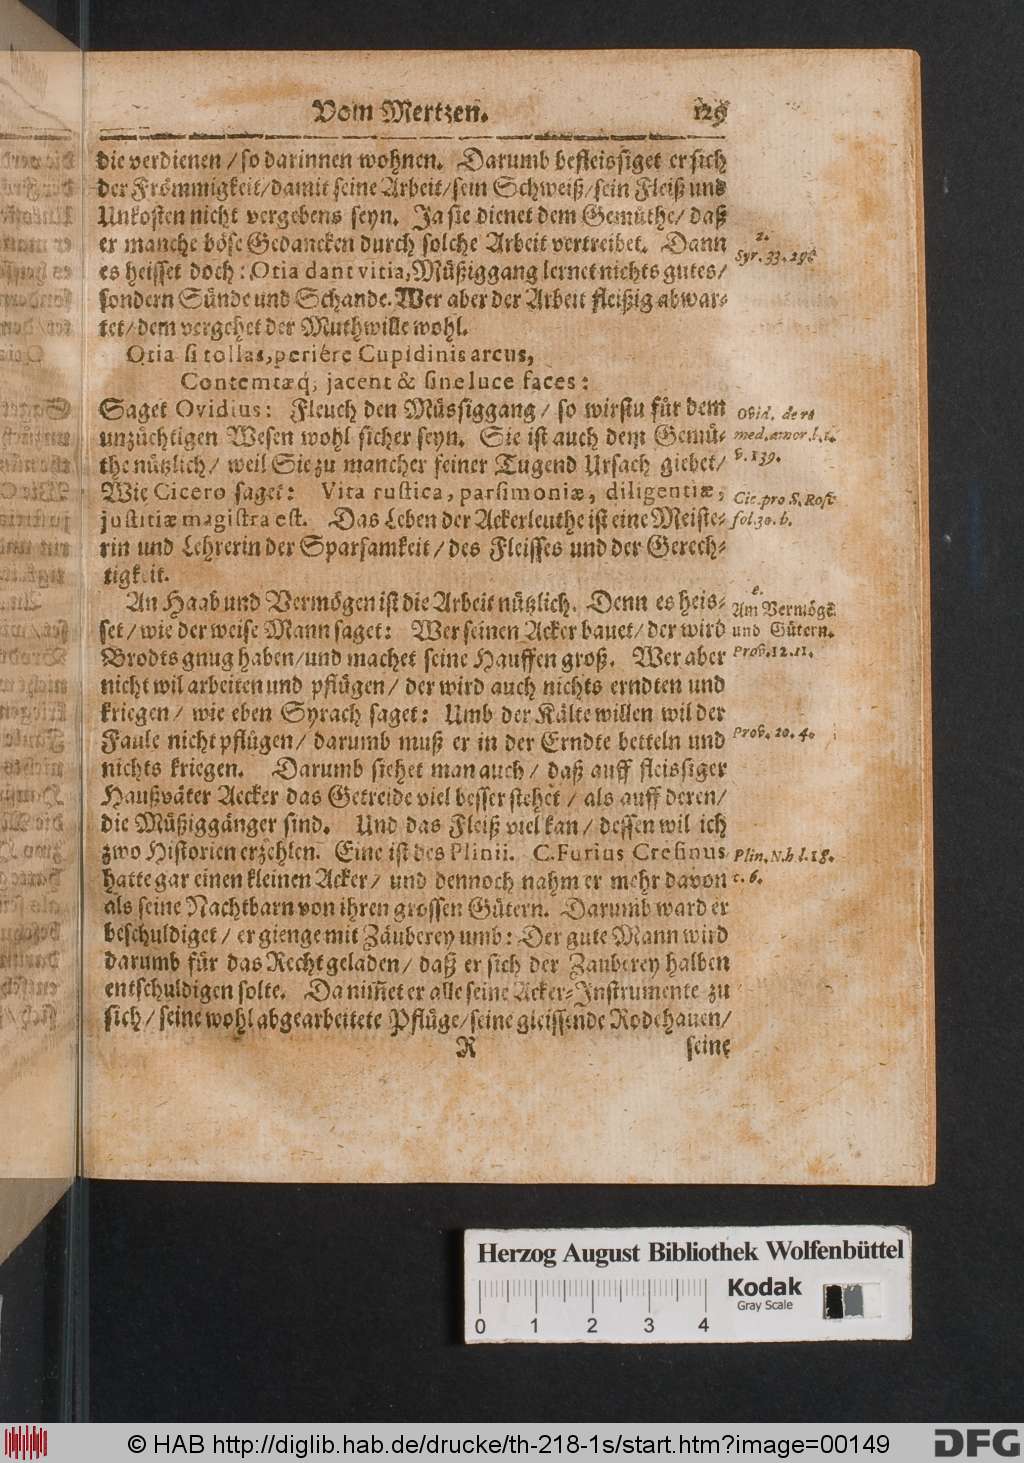 Vom Mertzen. 129
die verdienen / so darinnen wohnen. Darumb befleissiget er sich
der Frömmigkeit/damit seine Arbeit/sein Schweiß/sein Fleiß und
Unkosten nicht vergebens seyn. Ja sie dienet dem Gemüthe/ daß
er manche böse Gedancken durch solche Arbeit vertreibet. Dann
2.
Syr. 33. 29.
es heisset doch: Otia dant vitia, Müßiggang lernet nichts gutes/
sondern Sünde und Schande. Wer aber der Arbeit fleißig abwar-
tet/ dem vergehet der Muthwille wohl.
Otia si tollas, periêre Cupidinis arcus,
Contemtæq; jacent & sine luce faces:
Saget Ovidius: Fleuch den Müssiggang/ so wirstu für dem
Ovid. de re
unzüchtigen Wesen wohl sicher seyn. Sie ist auch dem Gemü-
med. amor. l. 1.
the nützlich/ weil Sie zu mancher feiner Tugend Ursach giebet/
v. 139.
Wie Cicero saget: Vita rustica, parsimoniæ, diligentiæ,
Cic. pro S. Rosc
justitiæ magistra est. Das Leben der Ackerleuthe ist eine Meiste-
fol. 30. b.
rin und Lehrerin der Sparsamkeit/ des Fleisses und der Gerech-
tigkeit.
An Haab und Vermögen ist die Arbeit nützlich. Denn es heis-
Am Vermöge
set/ wie der weise Mann saget: Wer seinen Acker bauet/ der wird
und Gütern.
Brodts gnug haben/und machet seine Hauffen groß. Wer aber
Prov. 12. 11.
nicht wil arbeiten und pflügen/ der wird auch nichts erndten und
kriegen/ wie eben Syrach saget: Umb der Kälte willen wil der
Faule nicht pflügen/ darumb muß er in der Erndte betteln und
Prov. 20. 4.
nichts kriegen. Darumb siehet man auch/ daß auff fleissiger
Haußväter Aecker das Getreide viel besser stehet/ als auff deren/
die Müßiggänger sind. Und das Fleiß viel kan/ dessen wil ich
zwo Historien erzehlen. Eine ist des Plinii. C. Furius Cresinus
Plin. N. h. l. 18.
hatte gar einen kleinen Acker/ und dennoch nahm er mehr davon
c. 6.
als seine Nachtbarn von ihren grossen Gütern. Darumb ward er
beschuldiget/ er gienge mit Zäuberey umb: Der gute Mann wird
darumb für das Recht geladen/ daß er sich der Zauberey halben
entschuldigen solte. Da nim̃et er alle seine Acker-Instrumente zu
sich/ seine wohl abgearbeitete Pflüge/seine gleissende Rodehauen/
R seine
Herzog August Bibliothek Wolfenbüttel
Kodak
Gray Scale
0 1 2 3 4
© HAB http://diglib.hab.de/drucke/th-218-1s/start.htm?image=00149
DFG